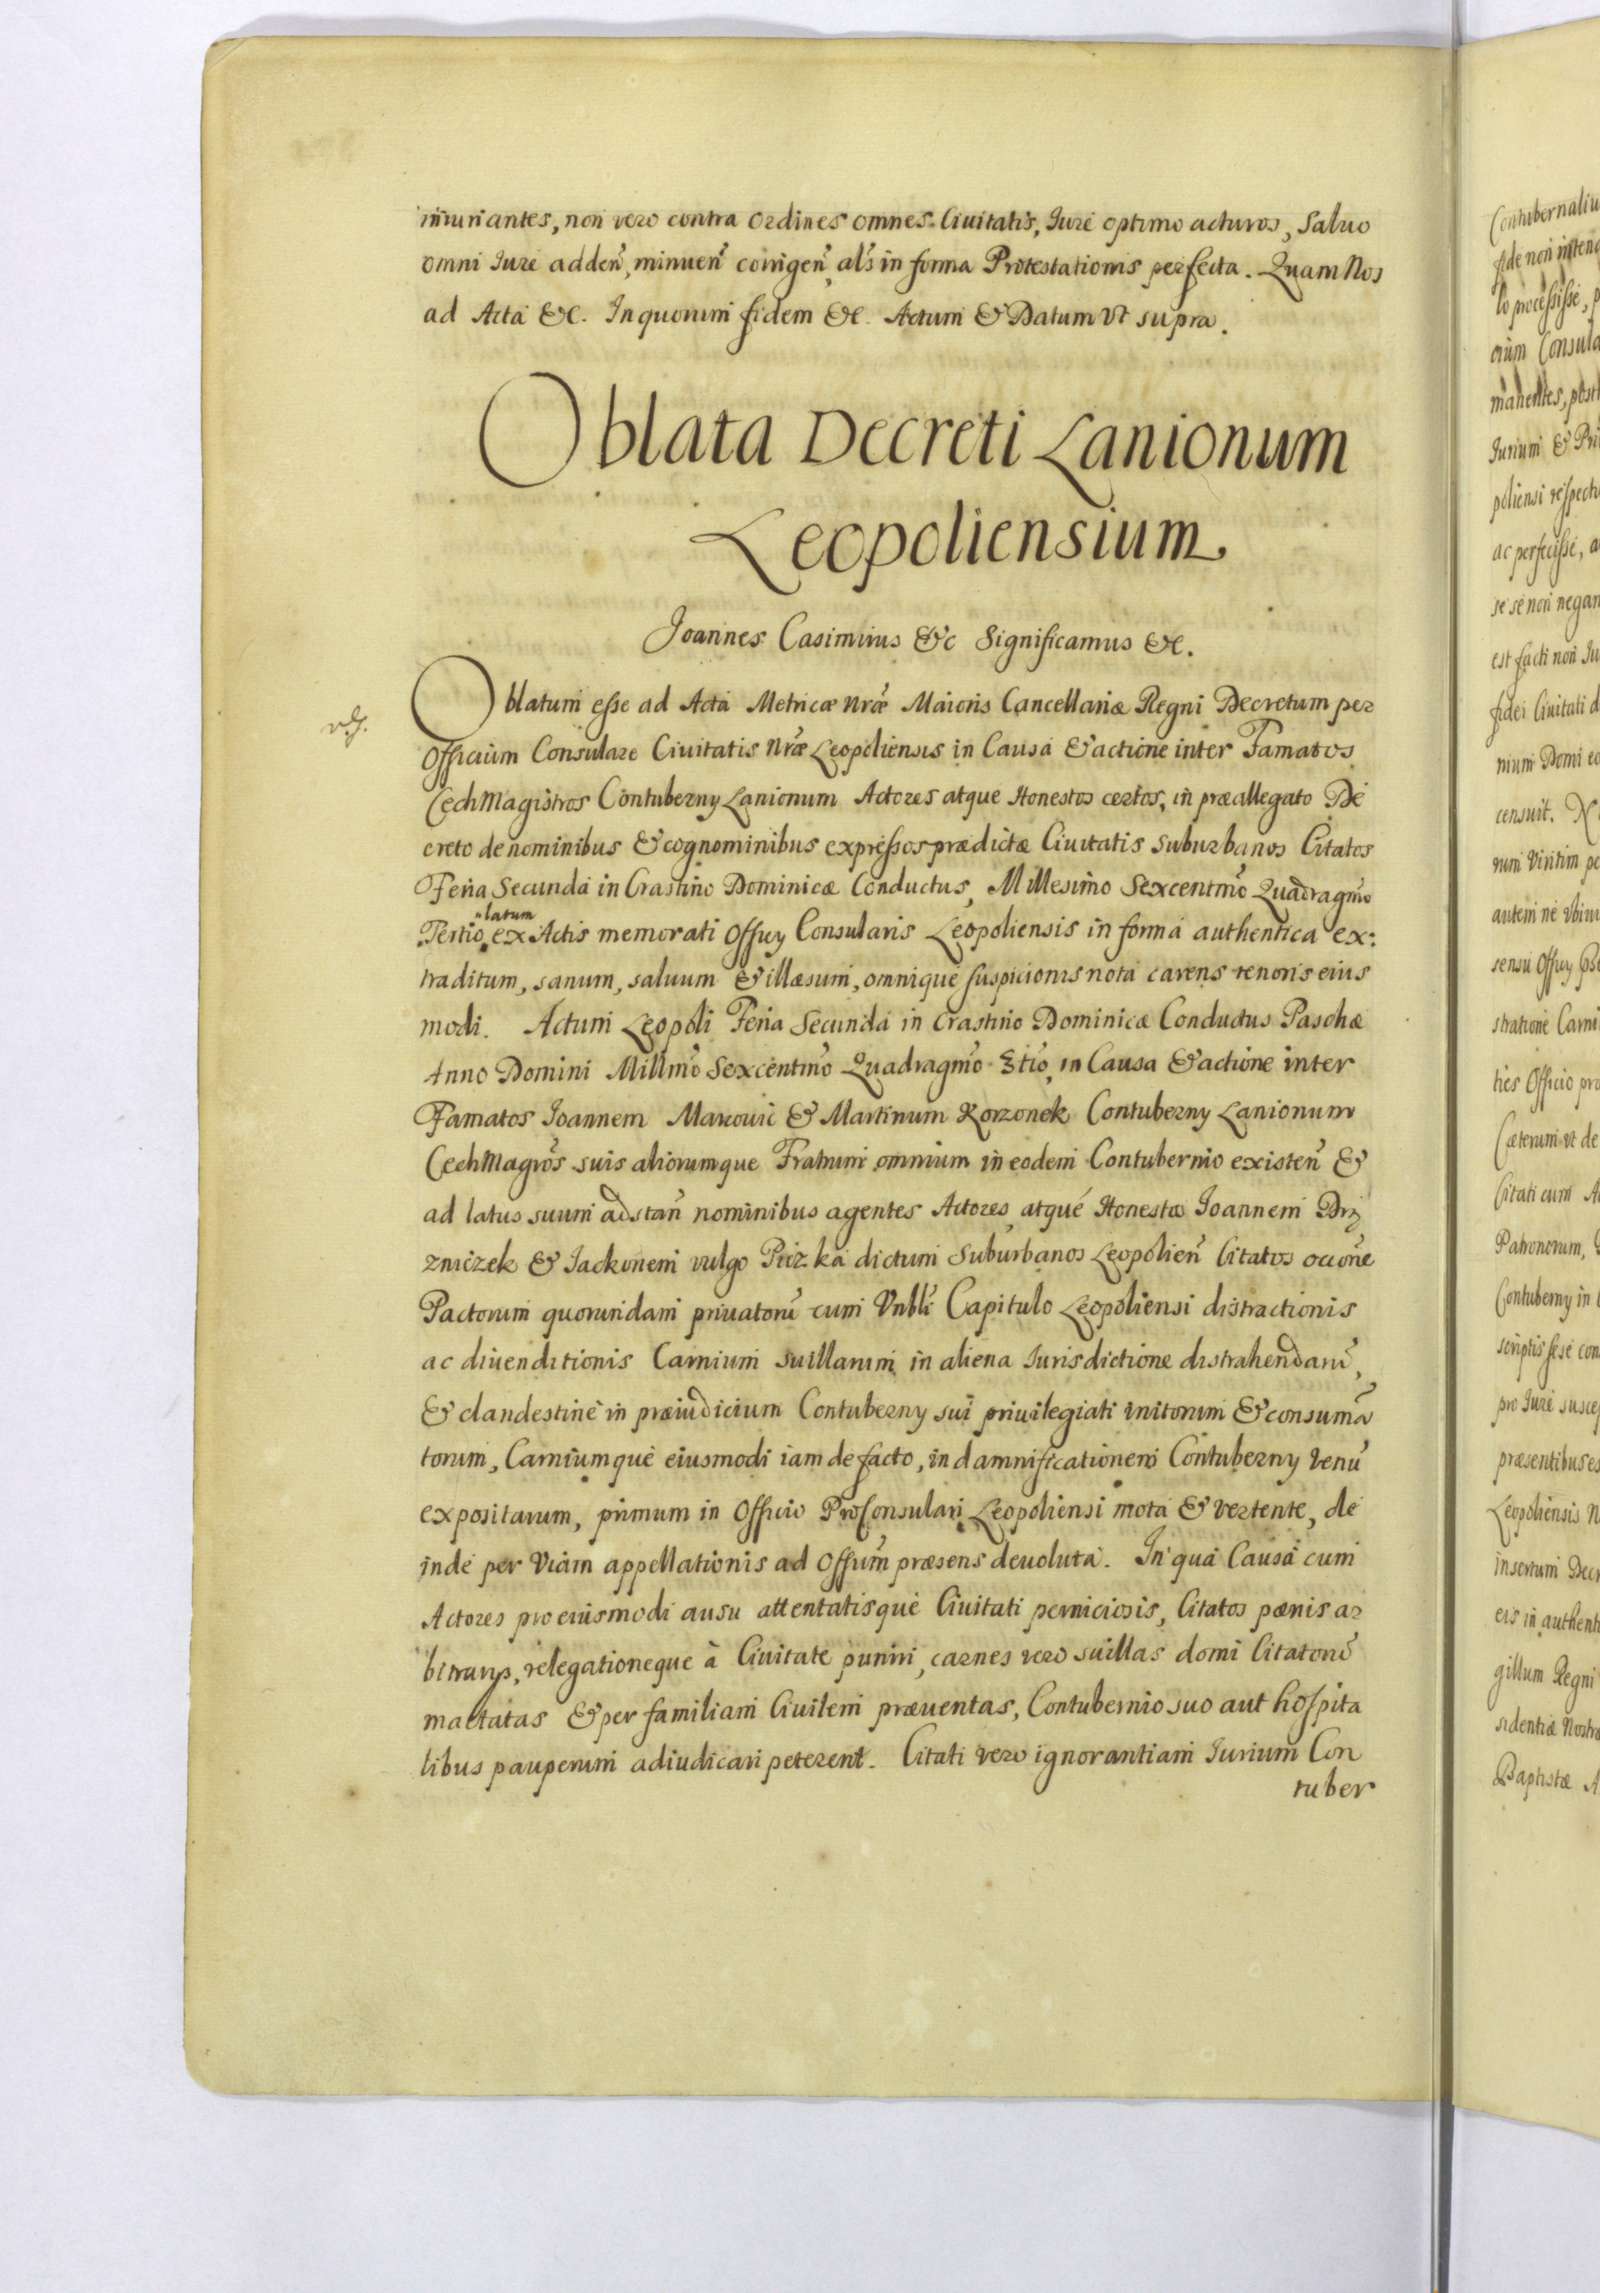 iniuriantes, non vero contra Ordines omnes Ciuitatis, Iure optimo acturos, Saluo
omni Iure adden̄, minuen̄ corrigen̄, al's in forma Protestationis perfecta. Quam Nos
ad Acta &c. In quorum fidem &c. Actum & Datum Vt supra.
Oblata Decreti Lanionum
Leopoliensium
Ioannes Casimirus &c Significamus &c.
Oblatum esse ad Acta Metricæ Nr̄æ Maioris Cancellariæ Regni Decretum per
Officium Consulare Ciuitatis Nr̄æ Leopoliensis in Causa & actione inter Famatos
CechMagistros Contuberny Lanionum Actores atque Honestos certos, in præallegato De
creto de nominibus & cognominibus expressos prædictæ Ciuitatis Suburbanos Citatos
Feria Secunda in Crastino Dominicæ Conductus, Millesimo Sexcentm̄o Quadragm̄o
latum
Tertio, ex Actis memorati Officy Consularis Leopoliensis in forma authentica ex:
traditum, sanum, saluum & illæsum, omnique suspicionis nota carens tenoris eius
modi. Actum Leopoli Feria Secunda in Crastino Dominicæ Conductus Paschæ
Anno Domini Millm̄o Sexcentm̄o Quadragm̄o 3tio, in Causa & actione inter
Famatos Ioannem Markowic & Martinum Korzonek Contuberny Lanionum
CechMagrōs suis aliorumque Fratrum omnium in eodem Contubernio existen̄ &
ad latus suum adstan̄ nominibus agentes Actores, atque Honestos Ioannem Drz
zniczek & Jackonem vulgo Prizka dictum Suburbanos Leopolien̄ Citatos occōne
Pactorum quorundam priuatorū cum Vnbli Capitulo Leopoliensi distractionis
ac diuenditionis Carnium suillarum in aliena Iurisdictione distrahendarū,
& clandestine in præiudicium Contuberny sui priuilegiati initorum & consumā
torum, Carniumque eiusmodi iam de facto, in damnificationem Contuberny venū
expositarum, primum in Officio ProConsulari Leopoliensi mota & vertente, de
inde per Viam appellationis ad Offium̄ præsens deuoluta. In qua Causa cum
Actores pro eiusmodi ausu attentatisque Ciuitati perniciosis, Citatos pænis ar
bitrarys, relegationeque à Ciuitate puniri, carnes vero suillas domi Citatorū
mactatas & per familiam Ciuilem præuentas, Contubernio suo aut hospita
libus pauperum adiudicari peterent. Citati vero ignorantiam Iurium Con
tuber